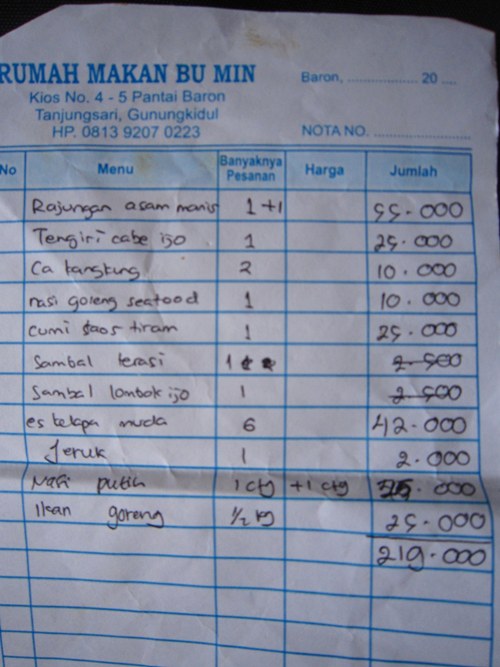 RUMAH MAKAN BU MIN
Kios No. 4 - 5 Pantai Baron
Tanjungsari, Gunungkidul
HP. 0813 9207 0223
Baron, .................... 20 ....
NOTA NO. ............................
No Menu Banyaknya Pesanan Harga Jumlah
Rajungan asam manis 1+1 55.000
Tengiri cabe ijo 1 25.000
Ca kangkung 2 10.000
nasi goreng seafood 1 10.000
cumi saos tiram 1 25.000
Sambal terasi 1 2.500
Sambal lombok ijo 1 2.500
es kelapa muda 6 42.000
Jeruk 1 2.000
Nasi putih 1 ctg +1 ctg 25.000
Ikan goreng 1/2 kg 25.000
219.000